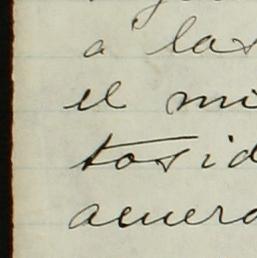 a las
el mi
tosid
acuerd